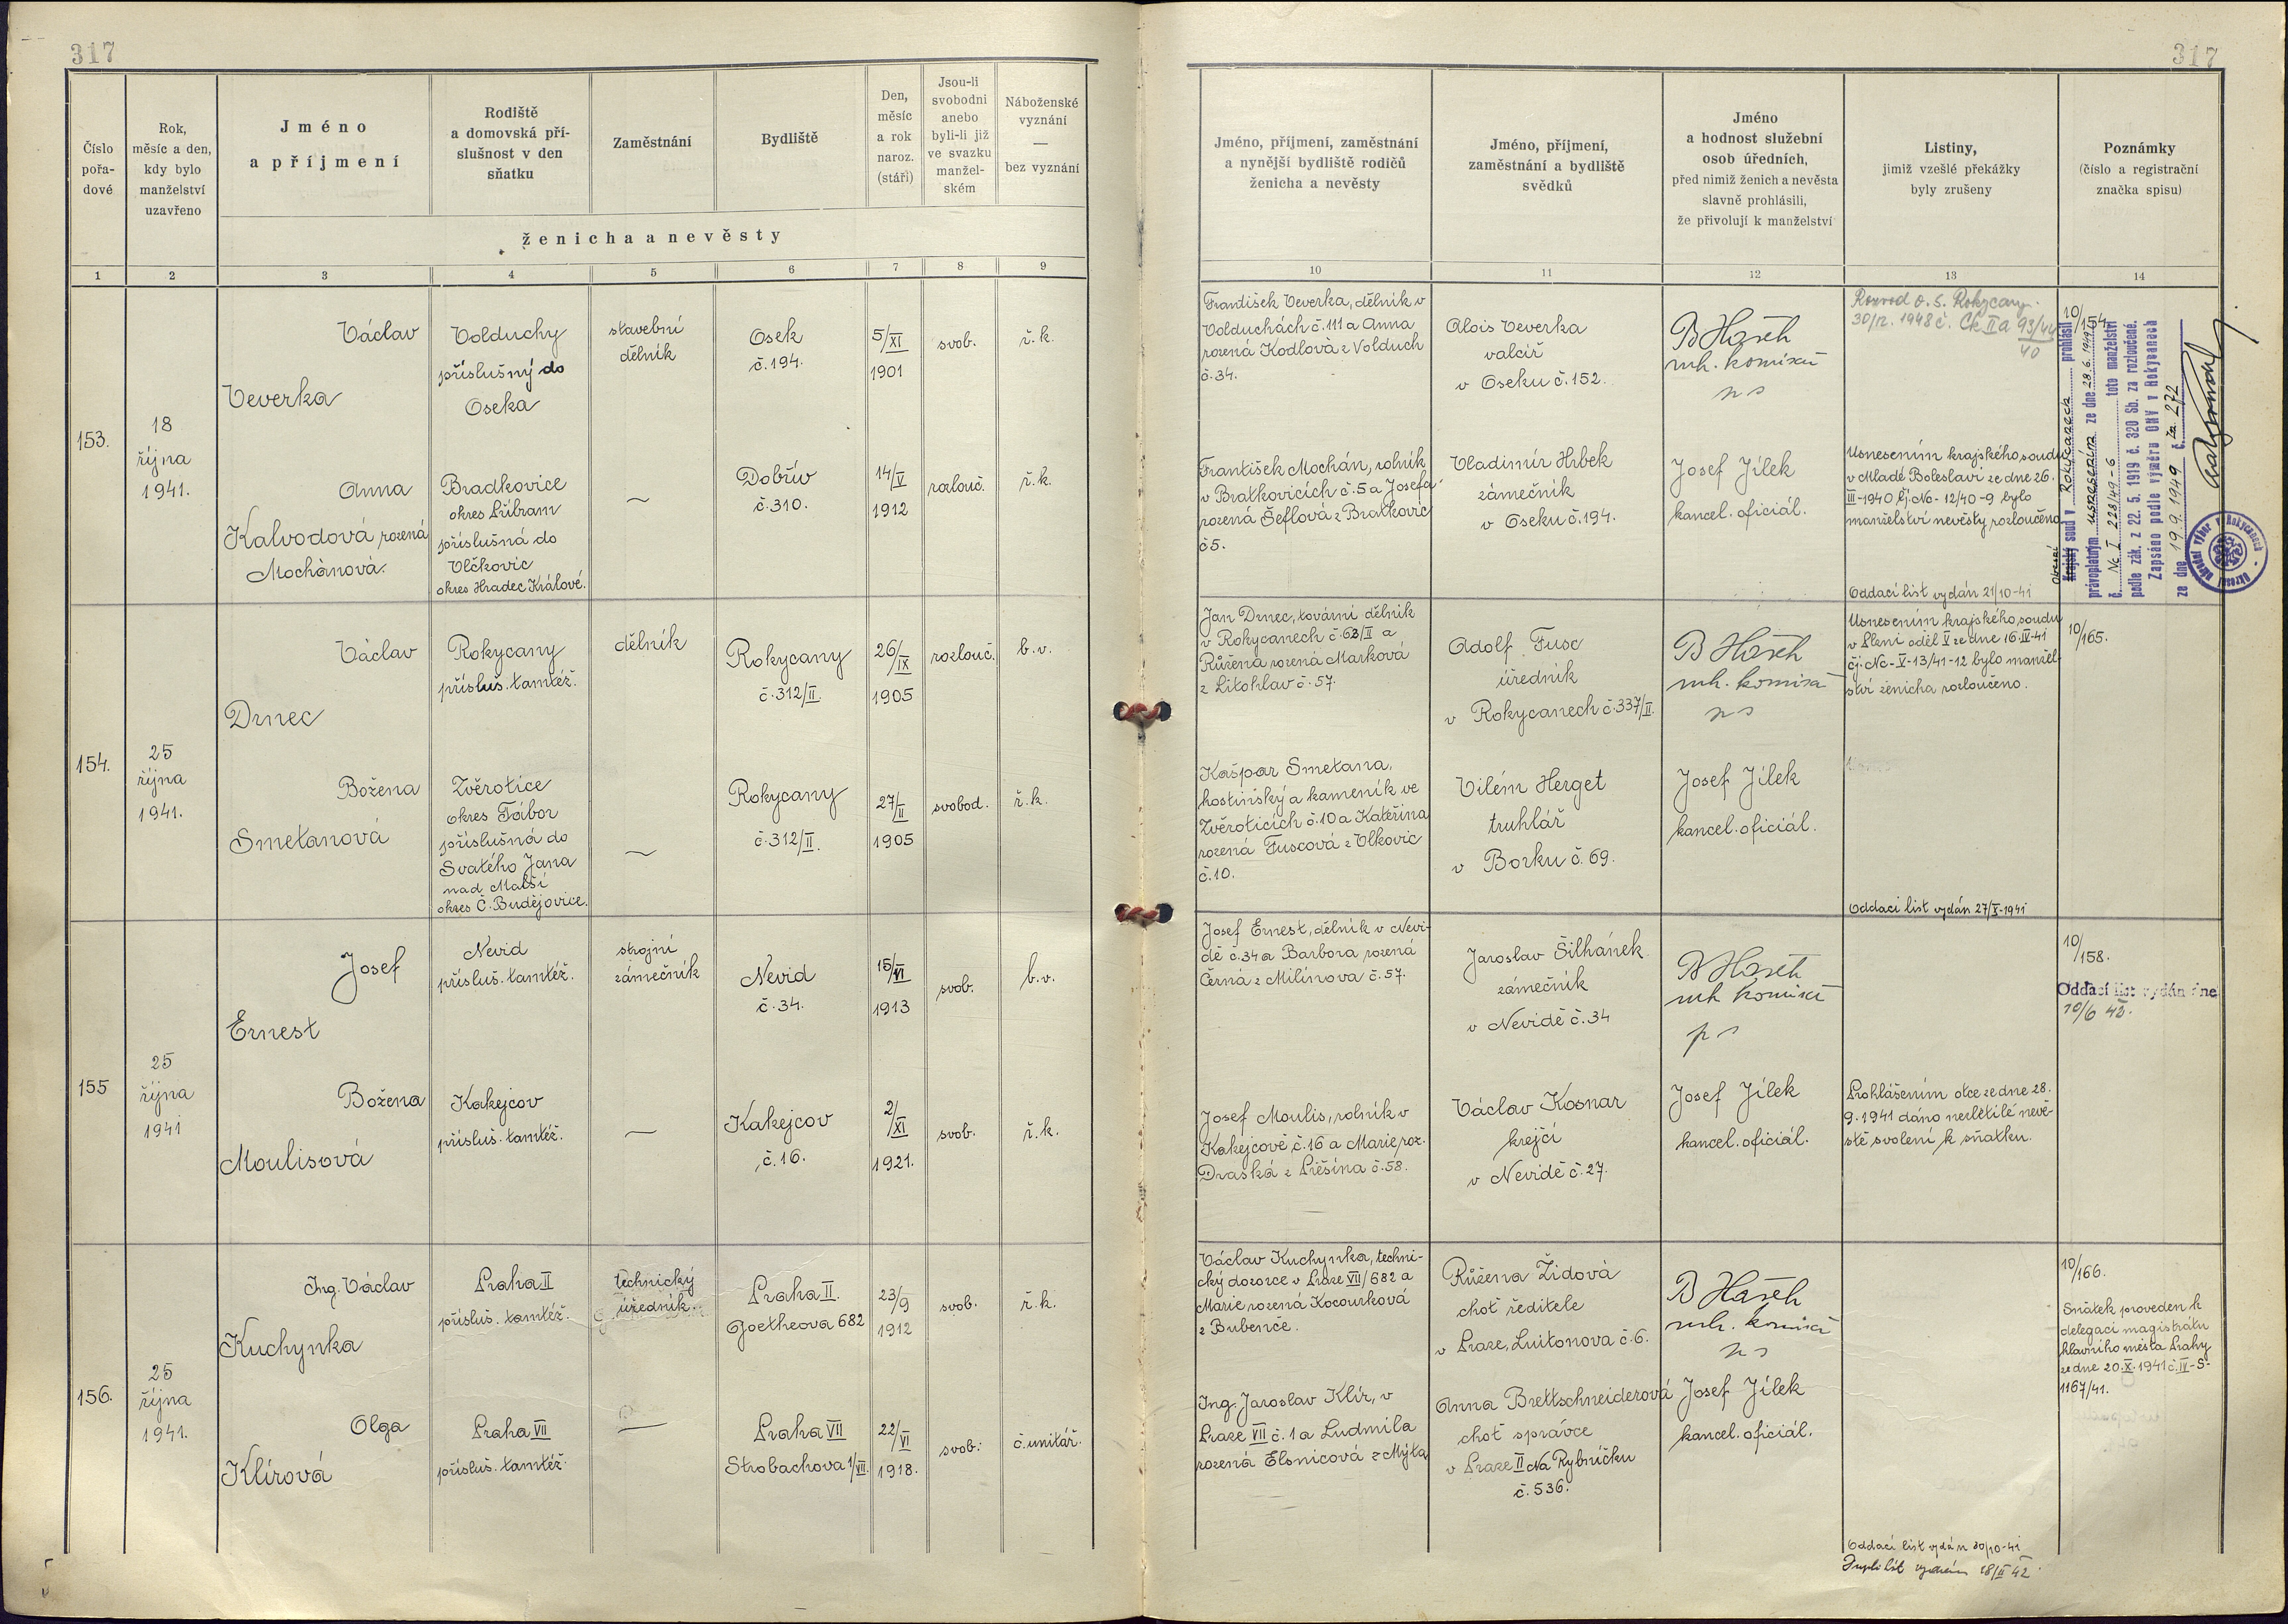 317
317
Číslo
pořa-
dové
Rok,
měsíc a den,
kdy bylo
manželství
uzavřeno
Jméno
a příjmení
Rodiště
a domovská pří-
slušnost v den
sňatku
Zaměstnání
Bydliště
Den,
měsíc
a rok
naroz.
(stáří)
Jsou-li
svobodni
anebo
byli-li již
ve svazku
manžel-
ském
Náboženské
vyznání
—
bez vyznání
ženicha a nevěsty
Jméno, příjmení, zaměstnání
a nynější bydliště rodičů
ženicha a nevěsty
Jméno, příjmení,
zaměstnání a bydliště
svědků
Jméno
a hodnost služební
osob úředních,
před nimiž ženich a nevěsta
slavně prohlásili,
že přivolují k manželství
Listiny,
jimiž vzešlé překážky
byly zrušeny
Poznámky
(číslo a registrační
značka spisu)
1 2 3 4 5 6 7 8 9
10 11 12 13 14
153.
18
října
1941.
Václav
Veverka
Volduchy
příslušný do
Oseka
stavební
dělník
Osek
č. 194.
5/XI
1901
svob.
ř. k.
František Veverka, dělník v
Volduchách č. 111 a Anna
rozená Kodlová z Volduch
č. 34.
Alois Veverka
valcíř
v Oseku č. 152.
B Hašek
Rozvod o. s. Rokycany
10/154.
Anna
Kalvodová rozená
Mochánová.
Bradkovice
okres Příbram
příslušná do
Vlčkovic
okres Hradec Králové.
—
Dobřív
č. 310.
14/V
1912
rozlouč.
ř. k.
František Mochán, rolník
v Bratkovicích č. 5 a Josefa
rozená Šeflová z Bratkovic
č 5.
Vladimír Hrbek
zámečník
v Oseku č. 194.
Josef Jílek
kancel. oficiál.
Usnesením krajského soudu
v Mladé Boleslavi ze dne 26.
III-1940 čj. Nc- 12/40-9 bylo
manželství nevěsty rozloučeno
Oddací list vydán 21/10-41
Krajský soud v Rokycanech prohlásil
Okresní
pravoplatným usnesením ze dne 28. 6. 1949
č. Nc I 228/49-6 toto manželství
podle zák. z 22. 5. 1919 č. 320 Sb. za rozloučené.
Zapsáno podle výměru ONV v Rokycanech
ze dne 19. 9. 1949 č. 272
154.
25
října
1941.
Václav
Drnec
Rokycany
přísluš. tamtéž.
dělník
Rokycany
č. 312/II.
26/IX
1905
rozlouč.
b. v.
Jan Drnec, tovární dělník
v Rokycanech č. 62/II a
Růžena rozená Marková
z Litohlav č. 57.
Adolf Fusc
úředník
v Rokycanech č. 337/II.
B Hašek
Usnesením krajského soudu
v Plzni oděl V ze dne 16. IV-41
čj. Nc-V-13/41-12 bylo manžel-
ství ženicha rozloučeno.
10/165.
Božena
Smetanová
Zvěrotice
okres Tábor
příslušná do
Svatého Jana
nad Malší
okres Č. Budějovice.
—
Rokycany
č. 312/II.
27/II
1905
svobod.
ř. k.
Kašpar Smetana,
hostinský a kameník ve
Zvěroticích č. 10 a Kateřina
rozená Fuscová z Vlkovic
č. 10.
Vilém Herget
truhlář
v Borku č. 69.
Josef Jílek
kancel. oficiál.
Oddací list vydán 27/X-1941
155
25
října
1941
Josef
Ernest
Nevid
přísluš. tamtéž.
strojní
zámečník
Nevid
č. 34.
15/VI
1913
svob.
b. v.
Josef Ernest, dělník v Nevi-
dě č. 34 a Barbora rozená
Černá z Milínova č. 57.
Jaroslav Šilhánek
zámečník
v Nevidě č. 34
B Hašek
10/158.
Oddací list vydán dne
10/6 42.
Božena
Moulisová
Kakejcov
přísluš. tamtéž.
—
Kakejcov
č. 16.
2/XI
1921.
svob.
ř. k.
Josef Moulis, rolník v
Kakejcově č. 16 a Marie roz.
Draská z Příšína č. 58.
Václav Kosnar
krejčí
v Nevidě č. 27.
Josef Jílek
kancel. oficiál.
Prohlášením otce ze dne 28.
9. 1941 dáno nezletilé nevě-
stě svolení k sňatku.
156.
25
října
1941.
Ing. Václav
Kuchynka
Praha II
přísluš. tamtéž.
technický
úředník.
Praha II.
Goetheova 682
23/9
1912
svob.
ř. k.
Václav Kuchynka, techni-
cký dozorce v Praze VII/682 a
Marie rozená Kocourková
z Bubenče.
Růžena Židová
choť ředitele
v Praze, Luitonova č. 6.
B Hašek
10/166.
Sňatek proveden k
delegaci magistrátu
hlavního města Prahy
ze dne 20. X. 1941 č. IV-S-
1167/41.
Olga
Klírová
Praha VII
přísluš. tamtéž.
—
Praha VII
Strobachova 1/VII.
22/VI
1918.
svob.
č. unitář.
Ing. Jaroslav Klír, v
Praze VII č. 1 a Ludmila
rozená Elsnicová z Mýta
Anna Brettschneiderová
choť správce
v Praze II Na Rybníčku
č. 536.
Josef Jílek
kancel. oficiál.
Oddací list vydán 30/10-41